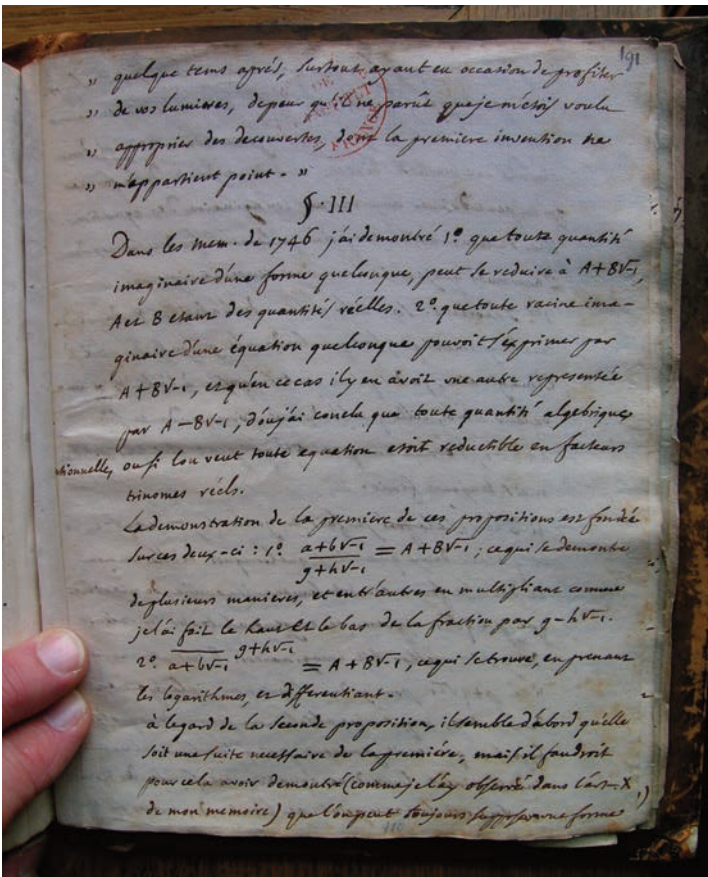 191
" quelque tems aprés, surtout ayant eu occasion de profiter
" de vos lumieres, de peur qu'il ne parût que je m'etois voulu
" approprier des decouvertes dont la premiere invention ne
" m'appartient point. "
§. III
Dans les mem. de 1746 j'ai demontré 1º. que toute quantité
imaginaire d'une forme quelconque, peut se reduire à A+B√-1,
A et B etant des quantités réelles. 2º. que toute racine ima-
ginaire d'une équation quelconque pouvoit s'exprimer par
A+B√-1, et qu'en ce cas il y en avoit une autre representée
par A-B√-1, d'où j'ai conclu que toute quantité algebrique
tionnelle, ou si l'on veut toute equation etoit reductible en facteurs
trinomes réels.
La demonstration de la premiere de ces propositions est fondée
sur ces deux-ci : 1º. (a+b√-1)/(g+h√-1) = A+B√-1 ; ce qui se demontre
de plusieurs manieres, et entr'autres en multipliant comme
je l'ai fait le haut et le bas de la fraction par g-h√-1.
2º. a+b√-1^(g+h√-1) = A+B√-1, ce qui se trouve, en prenant
les logarithmes, et differentiant.
à legard de la seconde proposition, il semble d'abord qu'elle
soit une suite necessaire de la premiére, mais il faudroit
pour cela avoir demontré (comme je l'ay observé dans l'art. X
de mon memoire) que l'on peut toujours supposer une forme
110